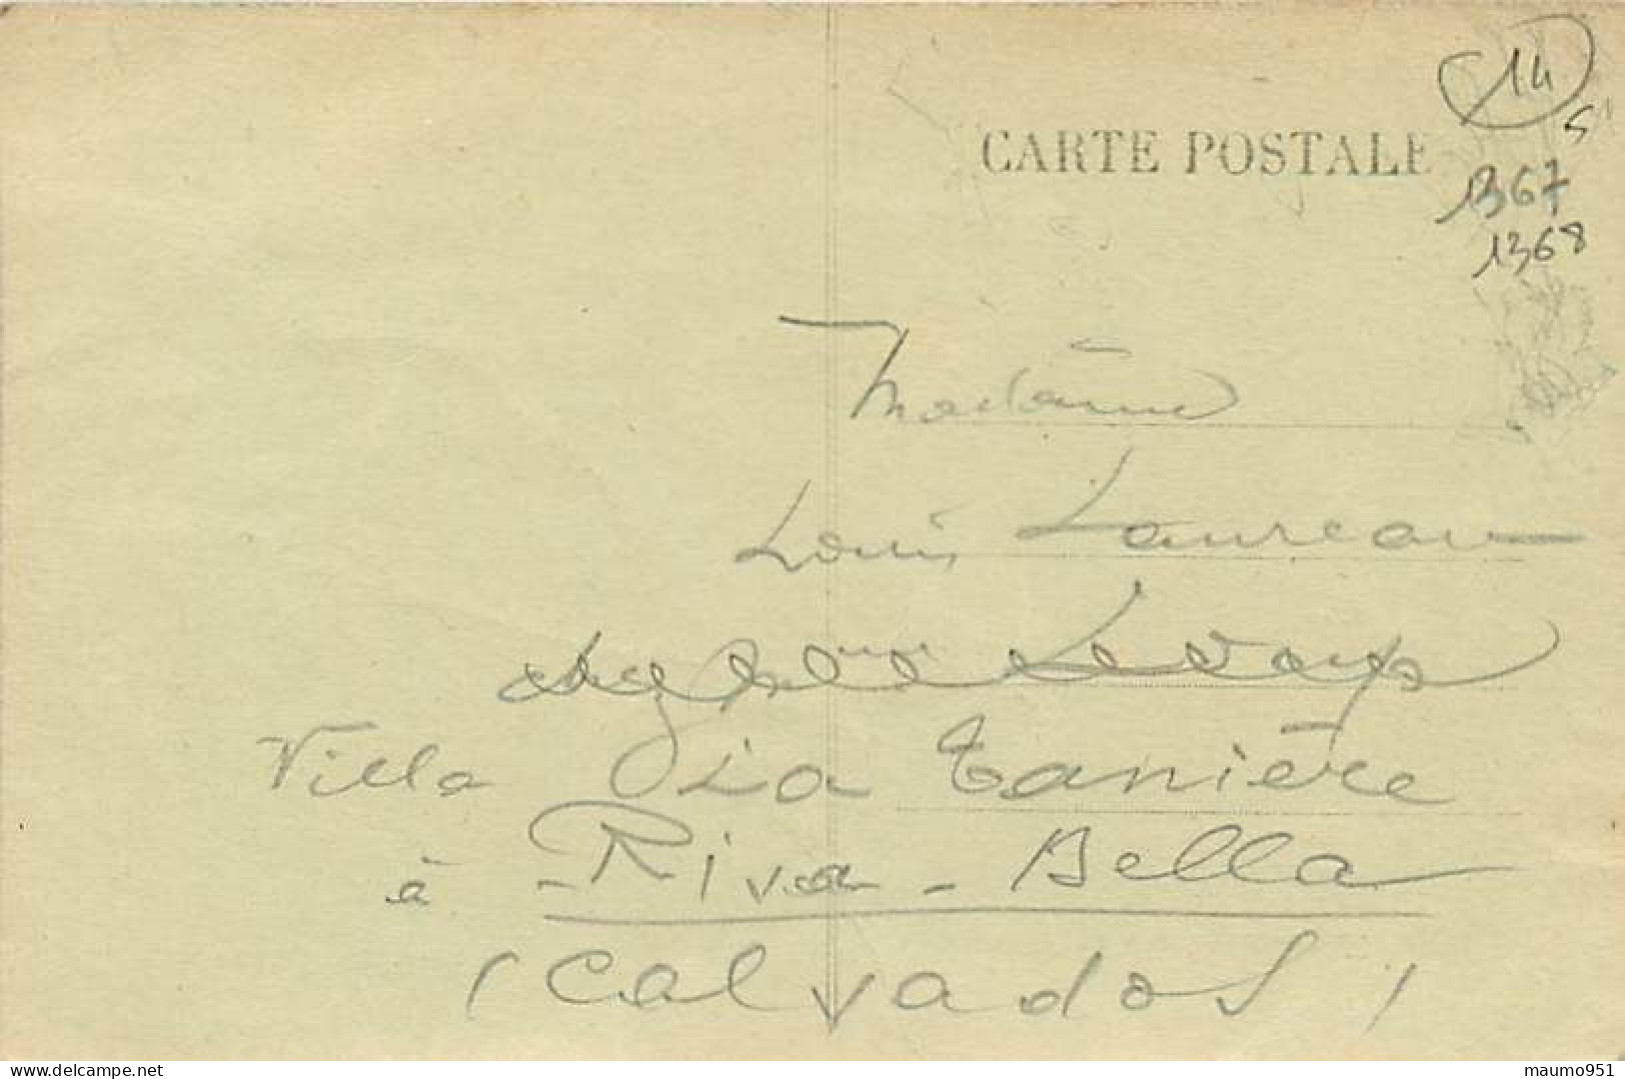 14
5
CARTE POSTALE
1367
1368
Madame
Louis Laureau
chez
Villa La Tanière
à - Riva - Bella
(Calvados)
www.delcampe.net
maumo951